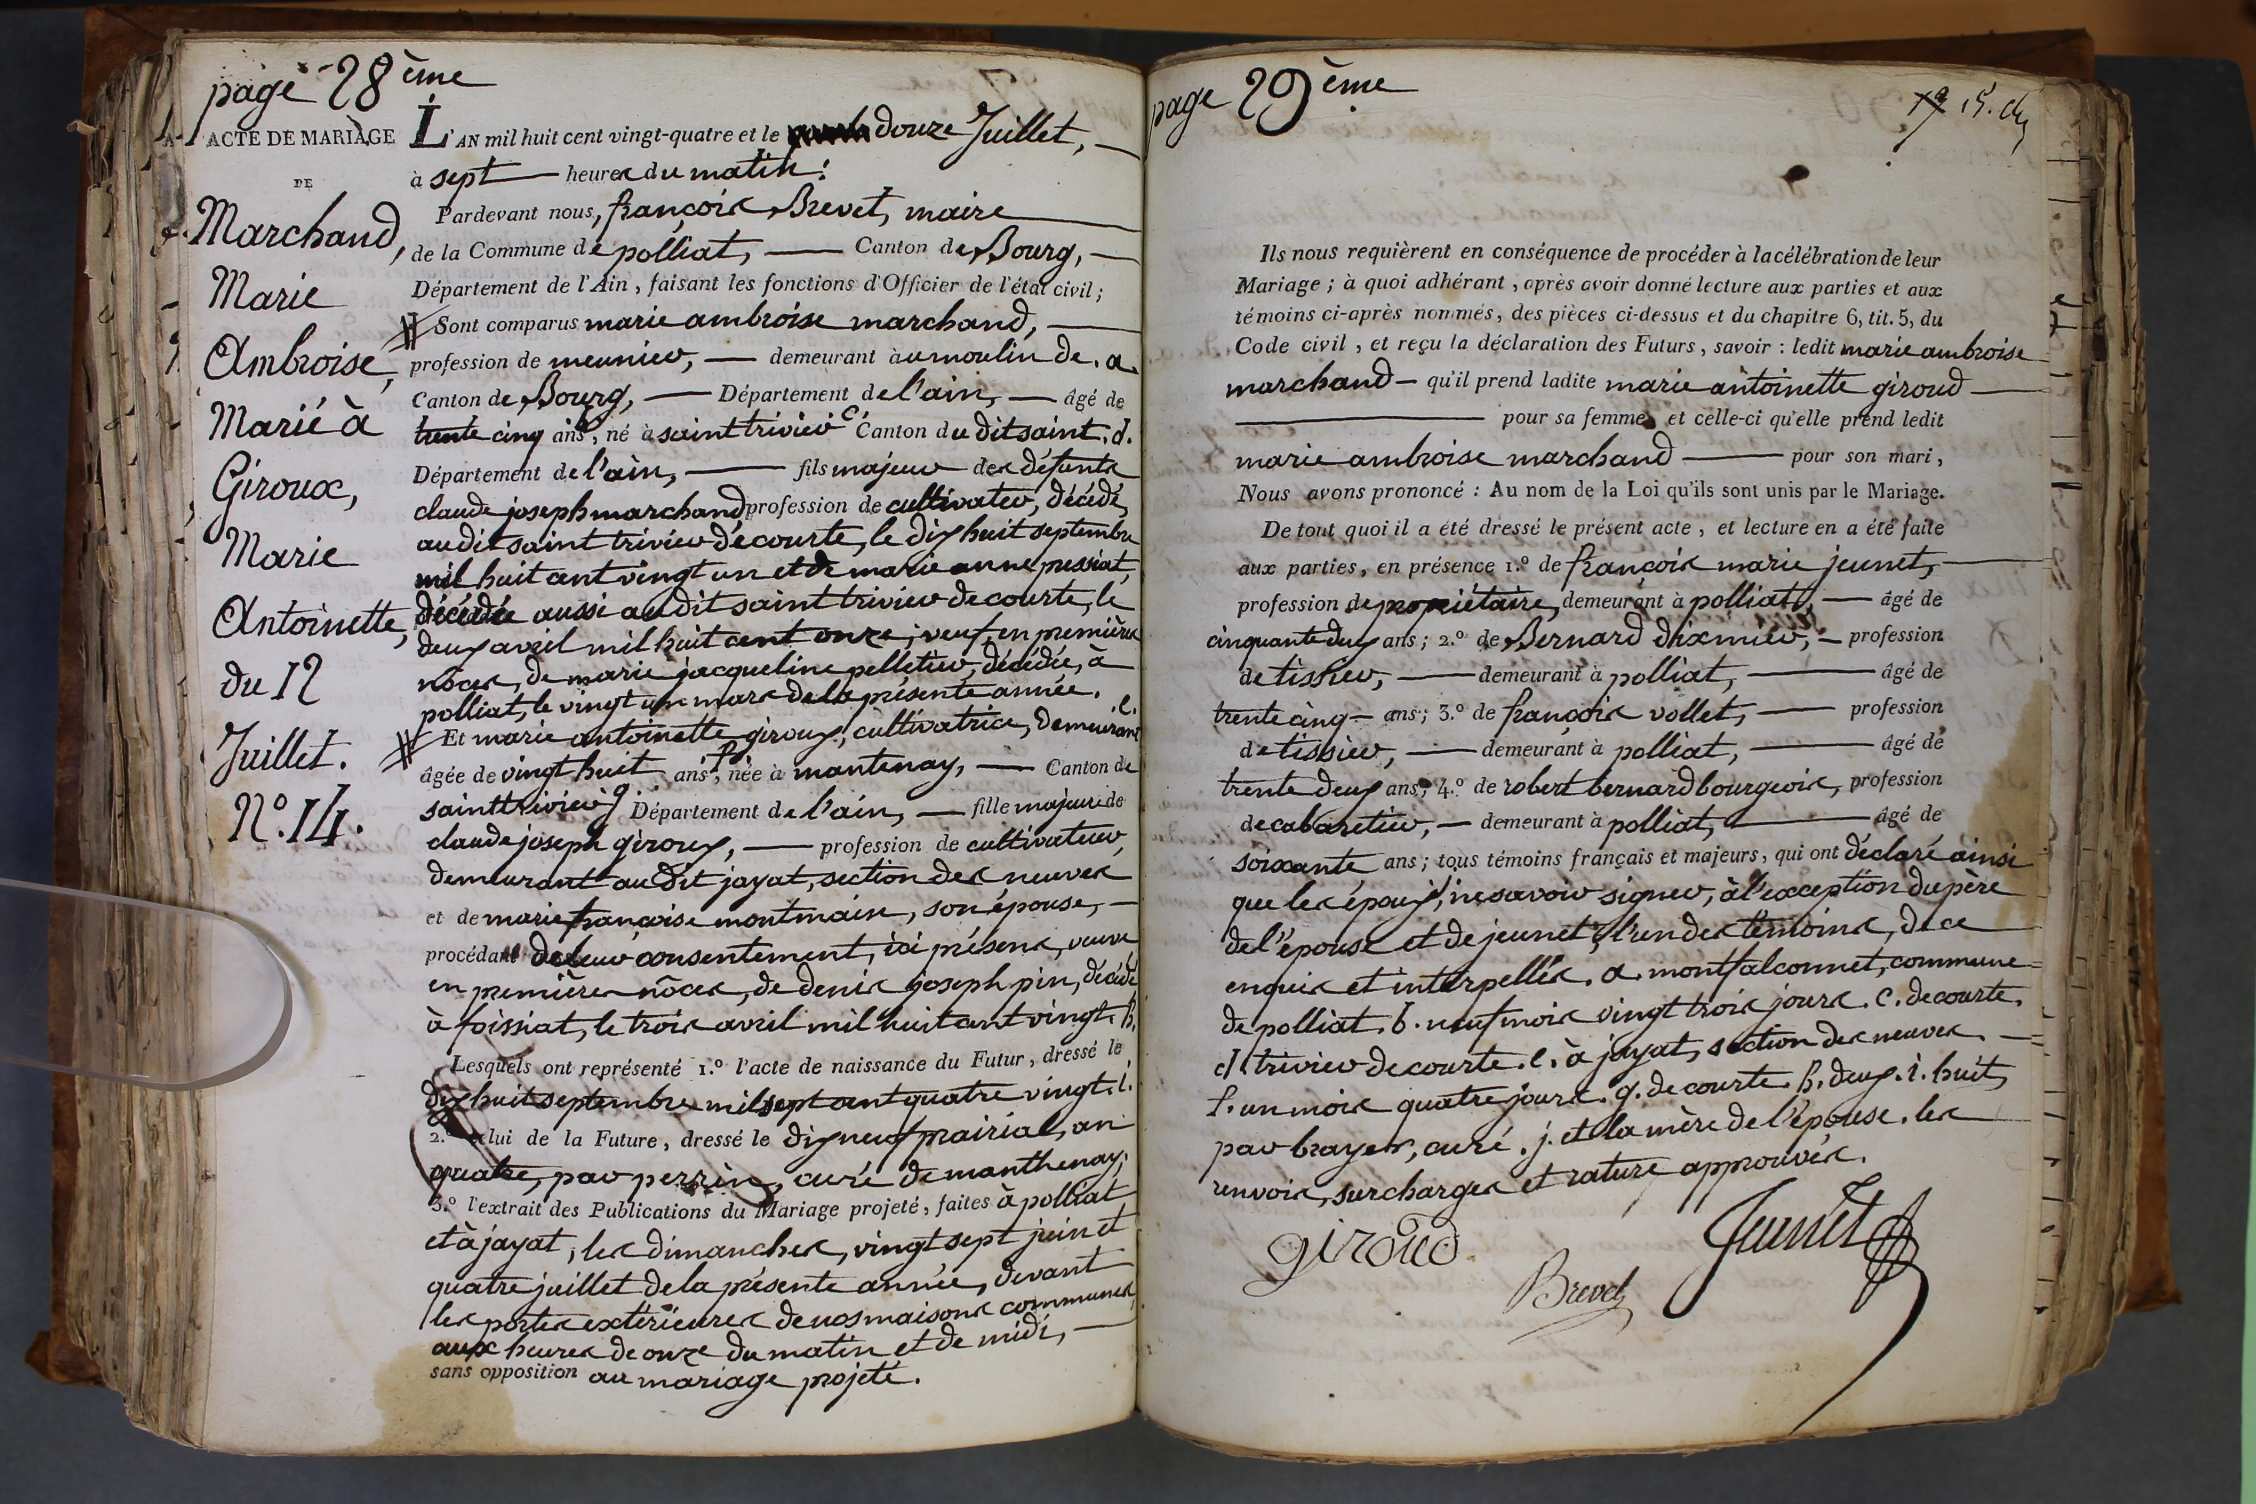 page 28ème
ACTE DE MARIAGE
DE
Marchand,
Marie
Ambroise,
Marié à
Giroux,
Marie
Antoinette,
du 12
Juillet.
N°. 14.
L'AN mil huit cent vingt-quatre et le douze Juillet,
à sept heures du matin :
Pardevant nous, françois Brevet, maire
de la Commune de polliat, Canton de Bourg,
Département de l'Ain, faisant les fonctions d'Officier de l'état civil ;
Sont comparus marie ambroise marchand,
profession de meunier, demeurant au moulin de . a.
Canton de Bourg, Département de l'ain, âgé de
trente cinq ans b, né à saint trivier c Canton du dit saint . d.
Département de l'ain, fils majeur des défunts
claude joseph marchand profession de cultivateur, décédé,
audit saint trivier de courte, le dix huit septembre
mil huit cent vingt un et de marie anne pussiat,
décédée aussi audit saint trivier de courte, le
deux avril mil huit cent onze ; veuf, en premières
nôces, de marie jacqueline pelletier, décédée, à
polliat, le vingt un mars de la présente année.
Et marie antoinette giroux, cultivatrice, demeurant e.
âgée de vingt huit ans f, née à mantenay, Canton de
saint trivier g. Département de l'ain, fille majeure de
claude joseph giroux, profession de cultivateur,
demeurant audit jayat, section des neuves
et de marie françoise montmain, son épouse,
procédant de leur consentement, ici présens, veuve
en premières nôces, de denis joseph pin, décédé
à foissiat, le trois avril mil huit cent vingt . h.
Lesquels ont représenté 1.° l'acte de naissance du Futur, dressé le
dix huit septembre mil sept cent quatre vingt . i.
2.° celui de la Future, dressé le dix neuf prairial, an
quatre, par perrin, curé de manthenay ;
3.° l'extrait des Publications du Mariage projeté, faites à polliat
et à jayat, les dimanches, vingt sept juin et
quatre juillet de la présente année, devant
les portes extérieures de nos maisons communes,
aux heures de onze du matin et de midi,
sans opposition au mariage projeté.
page 29ème
15.
Ils nous requièrent en conséquence de procéder à la célébration de leur
Mariage ; à quoi adhérant, après avoir donné lecture aux parties et aux
témoins ci-après nommés, des pièces ci-dessus et du chapitre 6, tit. 5, du
Code civil, et reçu la déclaration des Futurs, savoir : ledit marie ambroise
marchand qu'il prend ladite marie antoinette giroud
pour sa femme, et celle-ci qu'elle prend ledit
marie ambroise marchand pour son mari,
Nous avons prononcé : Au nom de la Loi qu'ils sont unis par le Mariage.
De tout quoi il a été dressé le présent acte, et lecture en a été faite
aux parties, en présence 1.° de françois marie jeunet,
profession de propriétaire, demeurant à polliat, âgé de
cinquante deux ans ; 2.° de Bernard dixmier, profession
de tissier, demeurant à polliat, âgé de
trente cinq ans ; 3.° de françois vollet, profession
de tissier, demeurant à polliat, âgé de
trente deux ans, 4.° de robert bernard bourgeois, profession
de cabaretier, demeurant à polliat, âgé de
soixante ans ; tous témoins français et majeurs, qui ont déclaré ainsi
que les époux j, ne savoir signer, à l'exception du père
de l'épouse et de jeunet, l'un des témoins, de ce
enquis et interpellés. a. montfalconnet, commune
de polliat. b. neuf mois vingt trois jours. c. de courte.
d. trivier de courte. e. à jayat, section des neuves.
f. un mois quatre jours. g. de courte. h. deux. i. huit,
par brayer, curé. j. et la mère de l'épouse. les
renvois, surcharges et rature approuvés.
giroud
Brevet
Jeunet